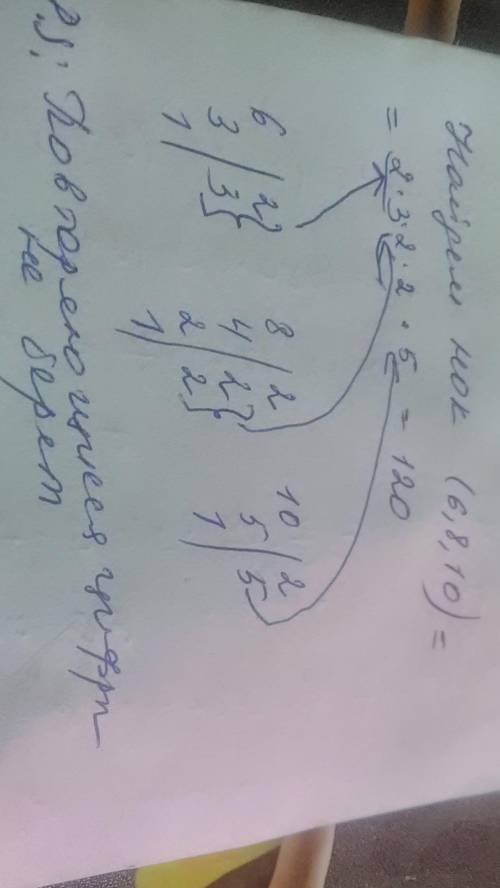 Найдем нок (6,8,10) =
= 2·3·2·2·5 = 120
6 | 2
3 | 3
1
8 | 2
4 | 2
2 | 2
1
10 | 2
5 | 5
1
P.S: Повторяющиеся цифры
не берем